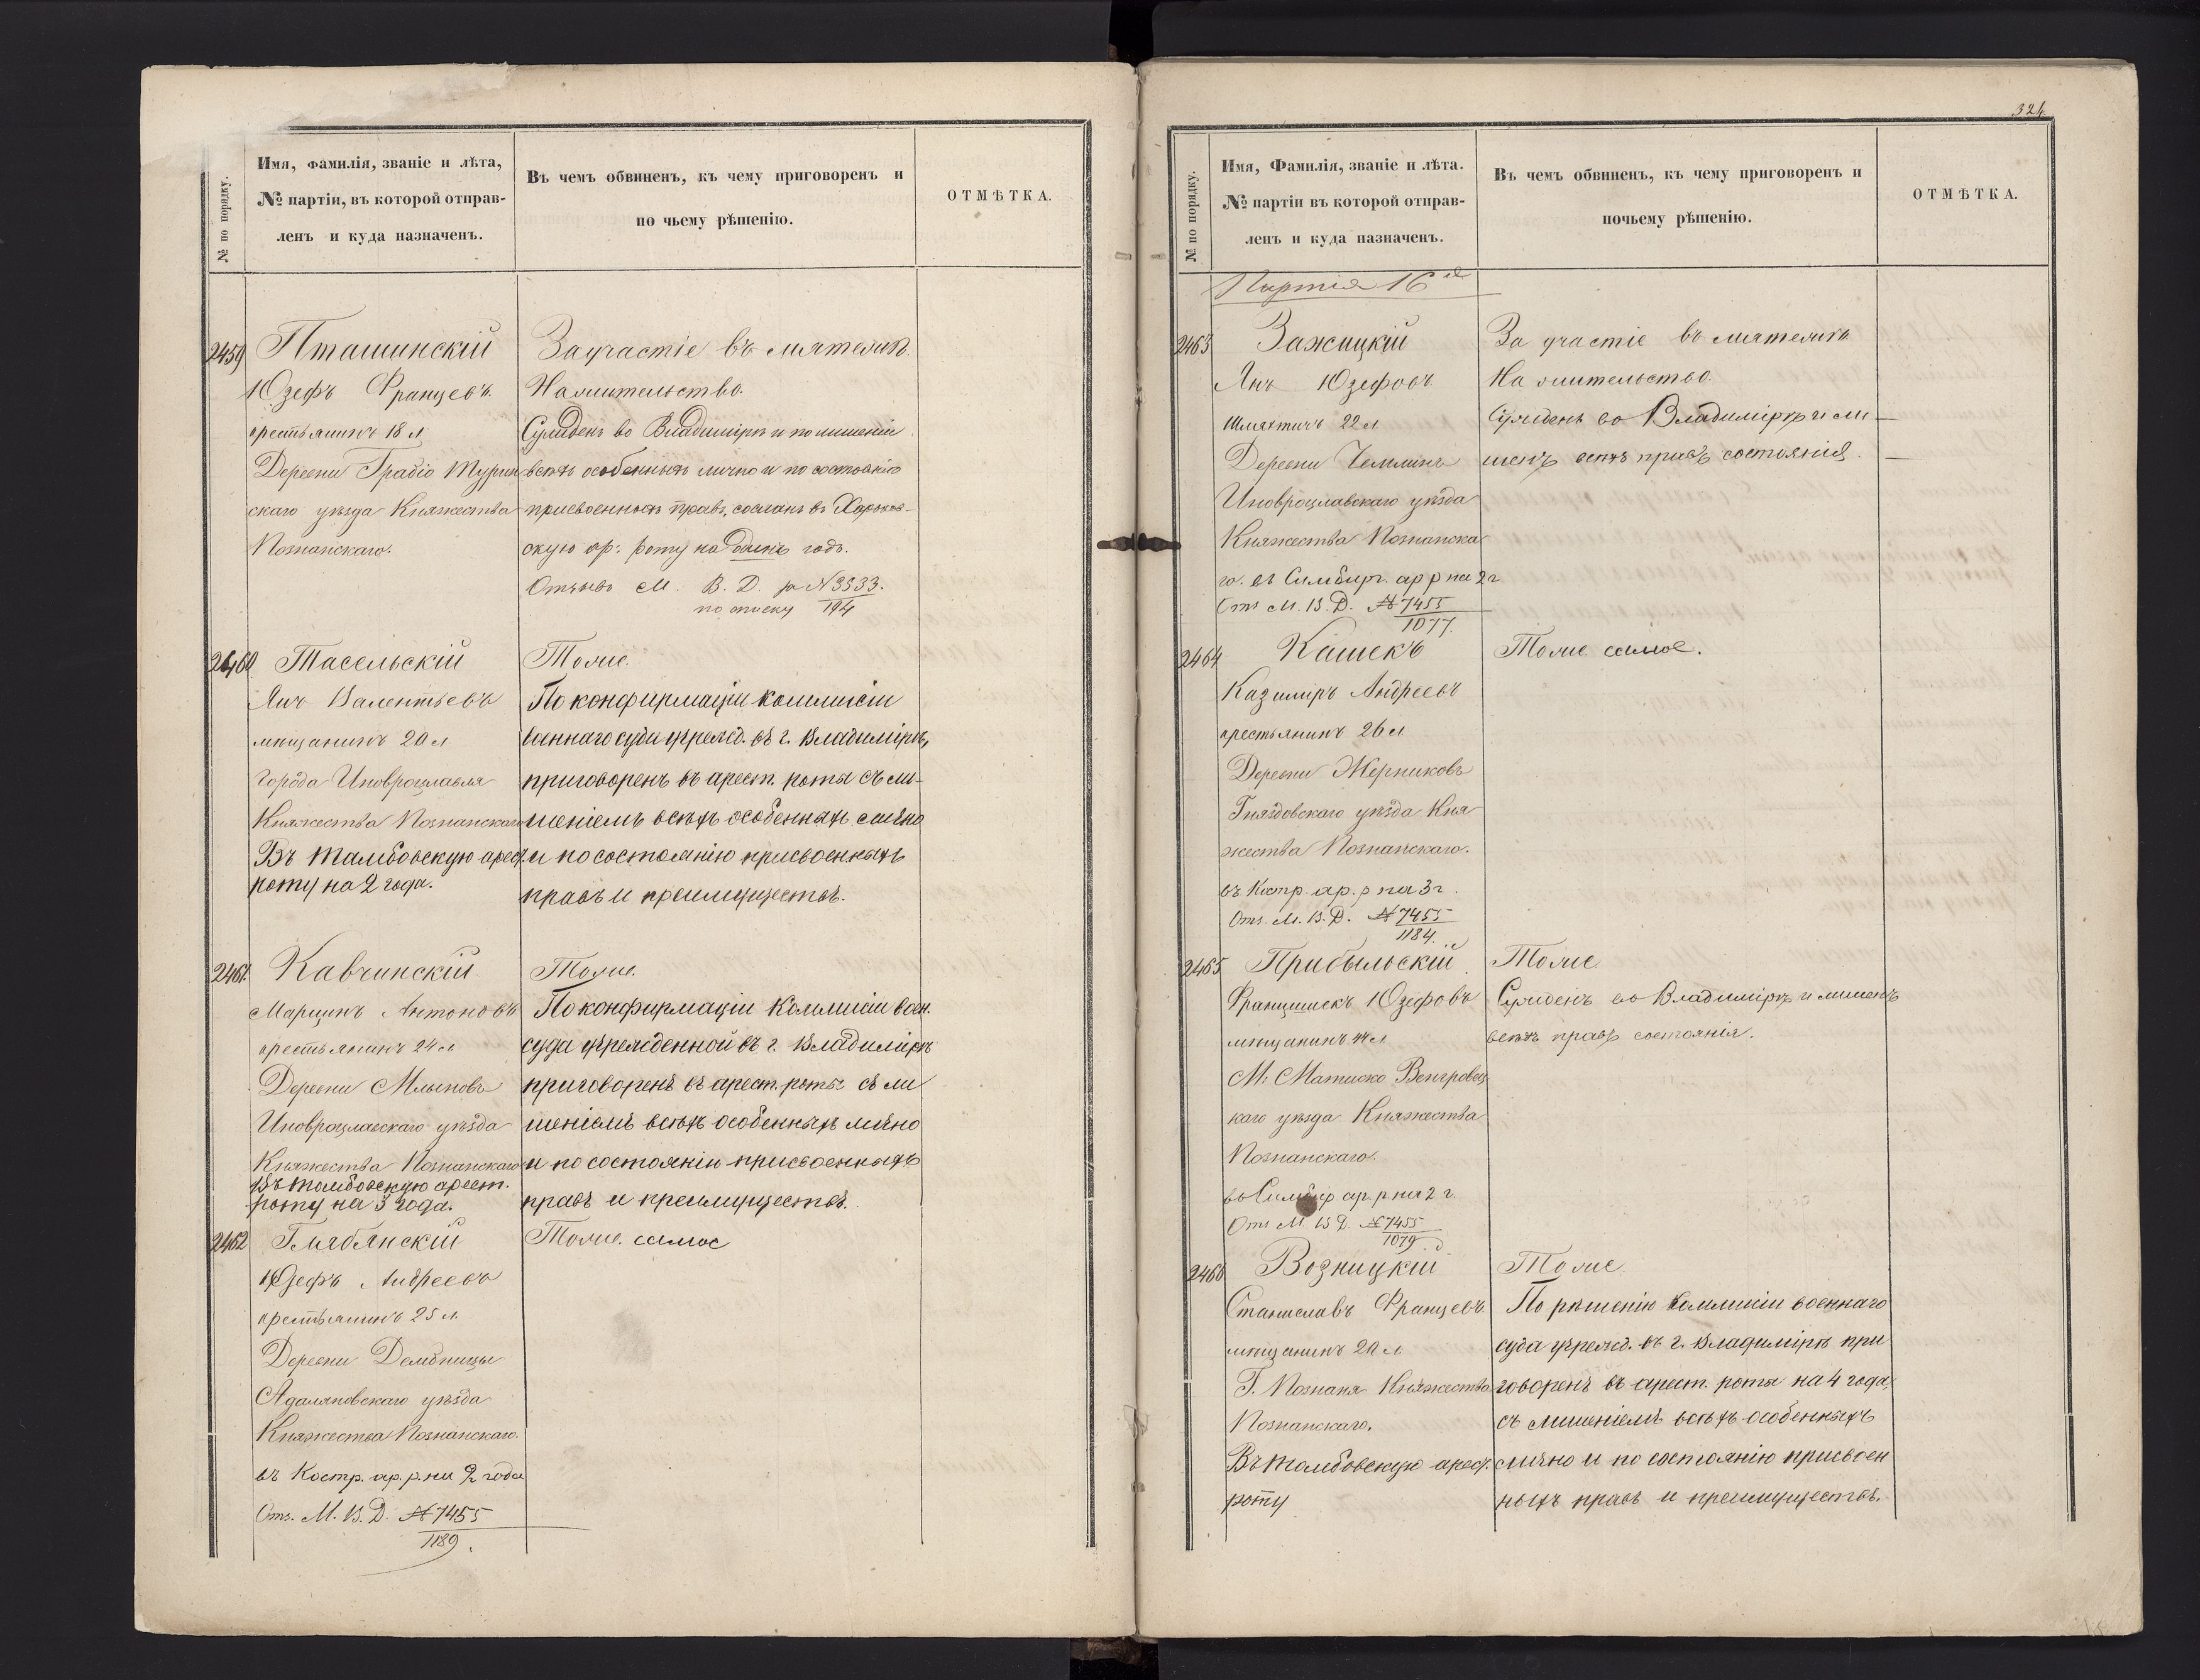 № по порядку.
Имя, фамилія, званіе и лѣта,
№ партіи, въ которой отправ-
ленъ и куда назначенъ.
Въ чемъ обвиненъ, къ чему приговоренъ и
по чьему рѣшенію.
ОТМѢТКА.
2459 Пташинскій
Юзефъ Францевъ.
крестьянинъ 18 л
Деревни Грабіо Турин
скаго уѣзда Княжества
Познанскаго.
За участіе въ мятежѣ.
На жительство.
Сужденъ во Владимірѣ и по лишеніи
всѣхъ особенныхъ лично и по состоянію
присвоенныхъ правъ, сосланъ въ Харьков-
скую ар: роту на одинъ годъ.
Отзывъ М. В. Д. за N 3333.
по списку 194
2460 Тасельскій
Янъ Валентьевъ
мѣщанинъ 20 л
Города Иновроцлавля
Княжества Познанскаго
Въ Тамбовскую арест.
роту на 2 года.
Тоже.
По конфирмаціи коммисіи
военнаго суда учрежд. въ г. Владимірѣ,
приговоренъ въ арест. роты съ ли-
шеніемъ всѣхъ особенныхъ лично
и по состоянію присвоенныхъ
правъ и преимуществъ.
2461. Кавчинскій
Марцинъ Антоновъ
крестьянинъ 24 л
Деревни Млыновъ
Иновроцлавскаго уѣзда
Княжества Познанскаго
Въ Тамбовскую арест.
роту на 3 года.
Тоже.
По конфирмаціи Коммисіи воен.
суда учрежденной въ г. Владимірѣ
приговоренъ въ арест. роты съ ли
шеніемъ всѣхъ особенныхъ лично
и по состоянію присвоенныхъ
правъ и преимуществъ.
2462 Гмябянскій
Юзефъ Андреевъ
крестьянинъ 25 л.
Деревни Дембницы
Адаляновскаго уѣзда
Княжества Познанскаго.
въ Костр. ар. р. на 2 года
Отз. М. В. Д. № 7455
1189.
Тоже самое
324
№ по порядку.
Имя, Фамилія, званіе и лѣта.
№ партіи въ которой отправ-
ленъ и куда назначенъ.
Въ чемъ обвиненъ, къ чему приговоренъ и
почьему рѣшенію.
ОТМѢТКА.
Партія 16я
2463 Зажицкій
Янъ Юзефовъ
Шляхтичъ 22 л
Деревни
Иновроцлавскаго уѣзда
Княжества Познанска
го. въ Симбирс. ар р на 2 г
Отз М. В. Д. № 7455
1077.
За участіе въ мятежѣ
На жительство.
Сужденъ во Владимірѣ и ли-
шенъ всѣхъ правъ состоянія.
2464 Кашекъ
Казиміръ Андреевъ
крестьянинъ 26 л
Деревни Жерниковъ
Гнѣздовскаго уѣзда Кня
жества Познанскаго.
въ Костр. ар. р на 3 г.
Отз. М. В. Д. № 7455
1184.
Тоже самое.
2465 Прибыльскій
Францишекъ Юзефовъ
мѣщанинъ л
М: Матиско Венгровец
каго уѣзда Княжества
Познанскаго.
въ Симбир ар. р на 2 г.
Отз М. В Д. № 7455
1079
Тоже
Сужденъ во Владимірѣ и лишенъ
всѣхъ правъ состоянія.
2466 Возницкій
Станиславъ Францевъ
мѣщанинъ 20 л
Г. Познаня Княжества
Познанскаго.
Въ Тамбовскую арест.
роту
Тоже.
По рѣшенію Коммисіи военнаго
суда учрежд. въ г. Владимірѣ при
говоренъ въ арест. роты на 4 года,
съ лишеніемъ всѣхъ особенныхъ
лично и по состоянію присвоен
ныхъ правъ и преимуществъ.